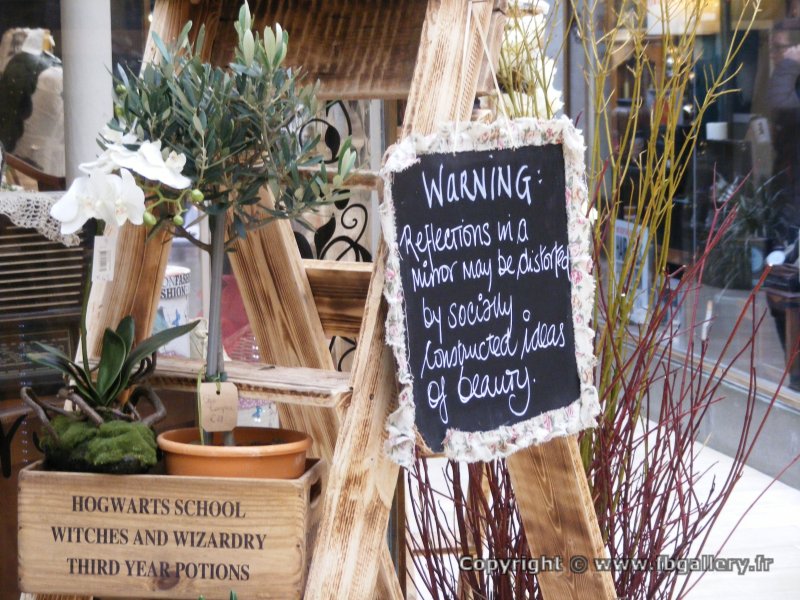 WARNING:
Reflections in a
mirror may be distorted
by socially
constructed ideas
of beauty.
HOGWARTS SCHOOL
WITCHES AND WIZARDRY
THIRD YEAR POTIONS
Copyright © www.fbgallery.fr